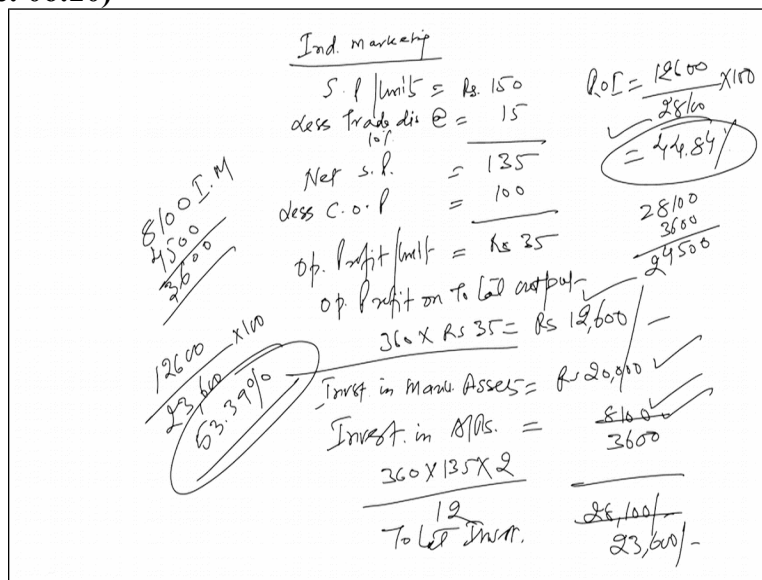 Ind. marketing
S.P/Unit = Rs. 150
Less Trade dis @ = 15
10%
Net S.P. = 135
Less C.O.P = 100
Op. Profit/Unit = Rs 35
Op. Profit on Total output
360 x Rs 35 = Rs 12,600/-
Invst. in Manu. Assets = Rs 20,000
Invest. in A/Rs. = 8100
3600
360 x 135 x 2
12
Total Invst. 28,100/-
23,600/-
ROI = 12600 x 100
28100
= 44.84%
28100
3600
24500
8100 I.M
4500
3600
12600 x 100
23,600
53.39%